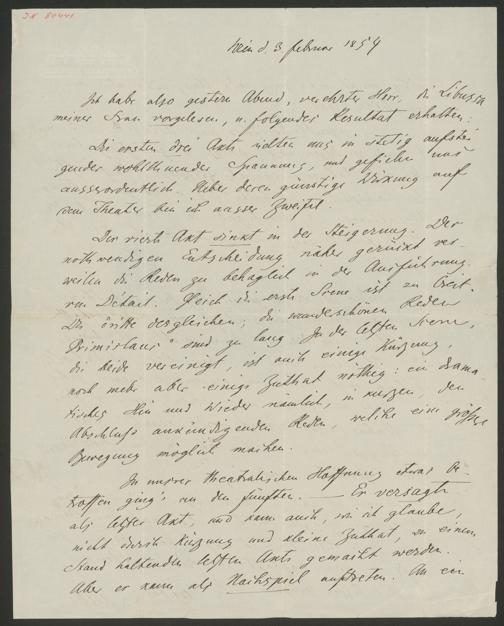 JN 80441
Wien d. 3 februar 1854
Ich habe also gestern Abend, verehrter Herr, die Libussa
meiner Frau vorgelesen, u. folgendes Resultat erhalten:
Die ersten drei Akte hielten uns in stetig aufstei-
gender wohlthuender Spannung, und gefielen uns
ausserordentlich. Ueber deren günstige Wirkung auf
dem Theater bin ich ausser Zweifel.
Der vierte Akt sinkt in der Steigerung. Der
nothwendigen Entscheidung näher gerückt ver-
weilen die Reden zu behaglich in der Ausführung
von Détail. Gleich die erste Scene ist zu breit.
Die dritte desgleichen; die wunderschönen Reden
Primislaus' sind zu lang. In der letzten Scene,
die beide vereinigt, ist auch einige Kürzung,
noch mehr aber einige Zuthat nöthig: ein drama-
tisches Hin und Wieder nämlich, in kurzen, den
Abschluß ankündigenden Reden, welche eine größere
Bewegung möglich machen.
In unsrer theatralischen Hoffnung etwas be-
troffen ging's an den fünften. — Er versagte
als letzter Akt, und kann auch, wie ich glaube,
nicht durch Kürzung und kleine Zuthat, zu einem
Stand haltenden letzten Akte gemacht werden.
Aber er kann als Nachspiel auftreten. An ein